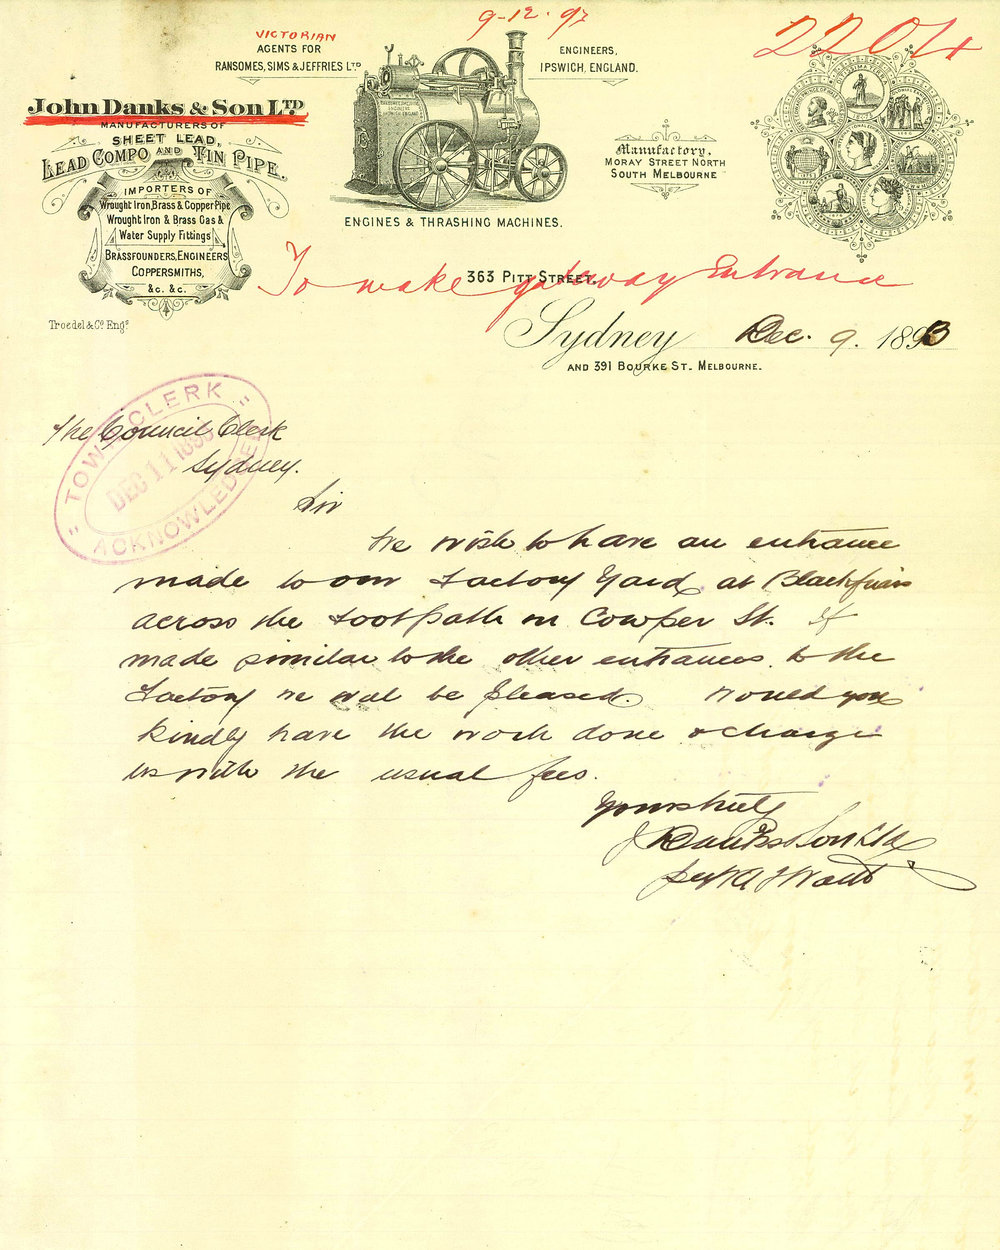 9-12-93
2204
VICTORIAN
AGENTS FOR
RANSOMES, SIMS & JEFFRIES LTD
ENGINEERS,
IPSWICH, ENGLAND.
John Danks & Son LTD
MANUFACTURERS OF
SHEET LEAD,
LEAD COMPO AND TIN PIPE.
IMPORTERS OF
Wrought Iron, Brass & Copper Pipe
Wrought Iron & Brass Gas &
Water Supply Fittings
BRASSFOUNDERS, ENGINEERS
COPPERSMITHS,
&c. &c.
Troedel & Co. Engs
ENGINES & THRASHING MACHINES.
Manufactory,
MORAY STREET NORTH
SOUTH MELBOURNE
To make gateway Entrance
363 PITT STREET.
Sydney Dec. 9. 1893
AND 391 BOURKE ST. MELBOURNE.
TOWN CLERK
DEC 11 1893
ACKNOWLEDGED
The Council Clerk
Sydney.
Sir
We wish to have an entrance
made to our Factory Yard, at Blackfriars
across the footpath on Cowper St. If
made similar to the other entrances to the
Factory we will be pleased. Would you
kindly have the work done & charge
us with the usual fees.
Yours truly
J Danks & Son Ltd
per